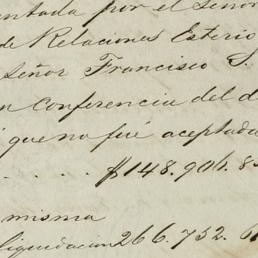 entada por el Señor
de Relaciones Esterio
Señor Francisco S.
n Conferencia del d
i que no fué aceptada
. . . . . $148.906.8
misma
liquidacion 266.752.6